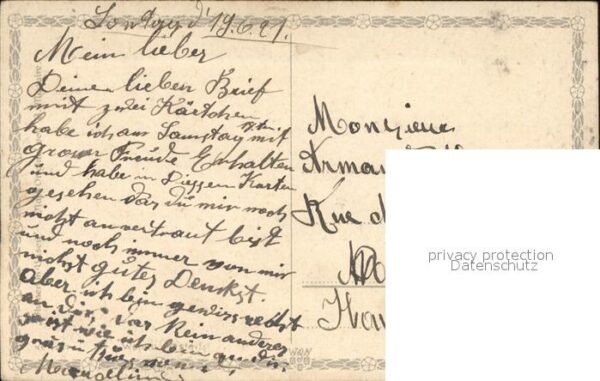 Sontag d' 19.6.21.
Mein lieber
Deinen lieben Brief
mit zwei Kärtchen
habe ich am Samstag mit
groser Freude Erhalten
und habe in diesen Karten
gesehen das du mir noch
nicht anvertraut bist
und noch immer von mir
nichst gutes Denkst.
aber ich bin gewiss
an dir das kein anderes
ist wie ich bin
Monsieur
Rue d
privacy protection
Datenschutz